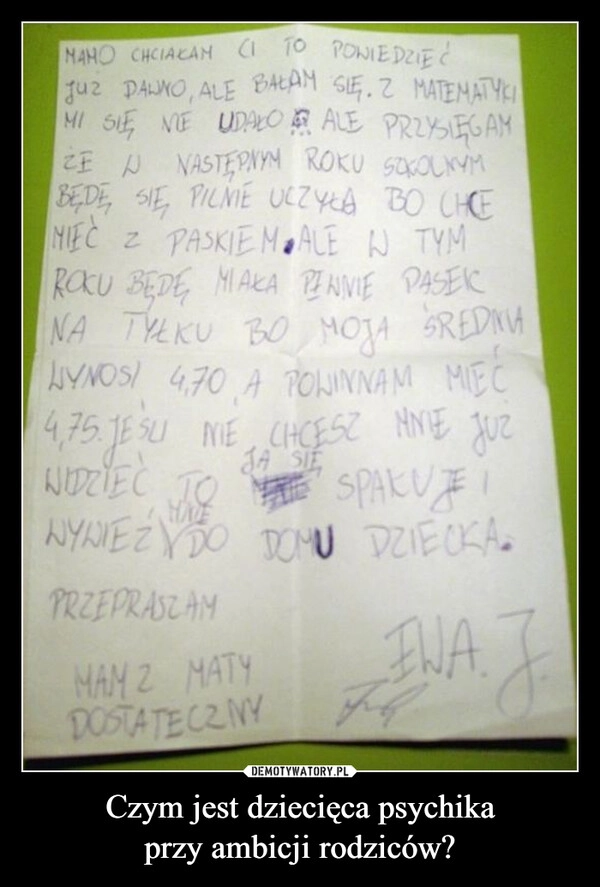 MAMO CHCIAŁAM CI TO POWIEDZIEĆ
JUŻ DAWNO, ALE BAŁAM SIĘ. Z MATEMATYKI
MI SIĘ NIE UDAŁO ALE PRZYSIĘGAM
ŻE W NASTĘPNYM ROKU SZKOLNYM
BĘDĘ SIĘ PILNIE UCZYŁA BO CHCE
MIEĆ Z PASKIEM. ALE W TYM
ROKU BĘDĘ MIAŁA PEWNIE PASEK
NA TYŁKU BO MOJA ŚREDNIA
WYNOSI 4,70 A POWINNAM MIEĆ
4,75. JEŚLI NIE CHCESZ MNIE JUŻ
WIDZIEĆ TO JA SIĘ SPAKUJE I
WYWIEŹ MNIE DO DOMU DZIECKA.
PRZEPRASZAM
EWA. J.
MAM Z MATY
DOSTATECZNY
DEMOTYWATORY.PL
Czym jest dziecięca psychika
przy ambicji rodziców?